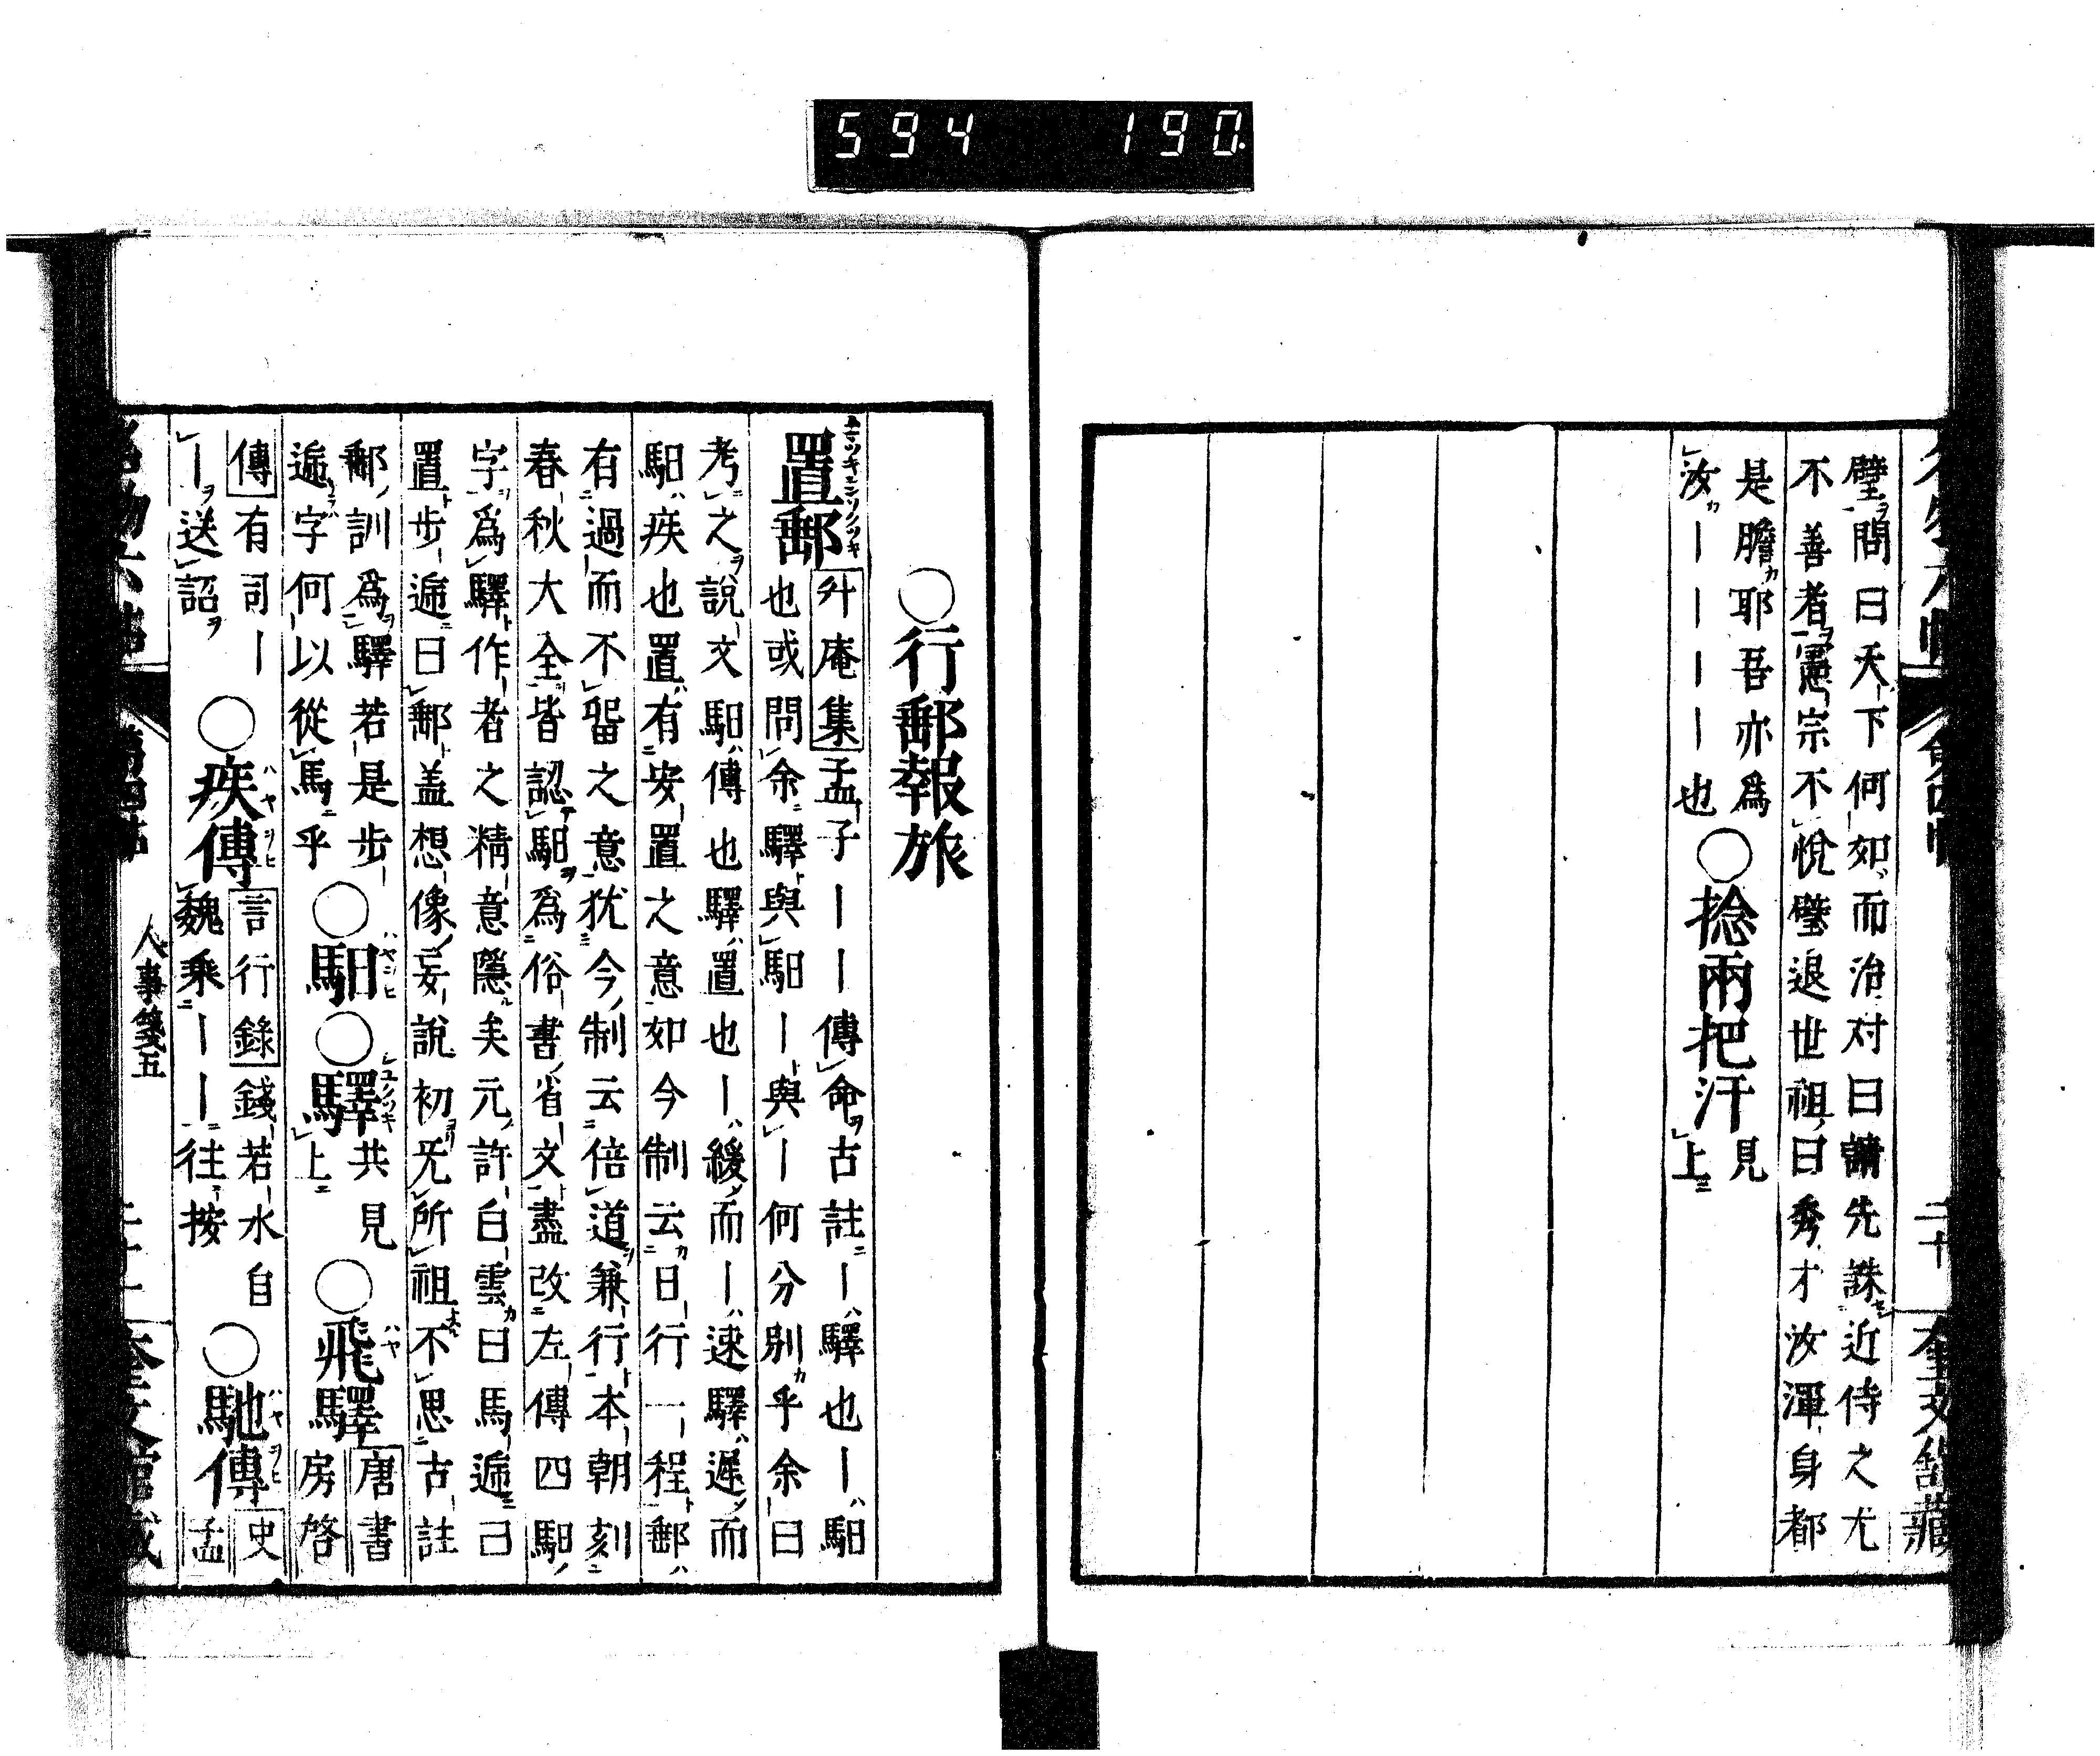 594 190
璧問曰天下何如而治対曰請先誅近侍之尤
不善者憲宗不悅璧退世祖曰秀才汝渾身都
是膽耶吾亦爲
汝一一一一也○捻兩把汗見
上
二十 奎文館藏
○行郵報旅
置郵 升庵集孟子一一傳命古註一驛也一馹
也或問余驛與馹一與一何分別乎余曰
考之說文馹傳也驛置也一緩而一速驛遲而
馹疾也置有安置之意如今制云日行一程郵
有過而不畱之意犹今制云倍道兼行本朝刻
春秋大全皆認馹爲俗書省文盡改左傳四馹
字爲驛作者之精意隱矣元許白雲曰馬遞曰
置步遞曰郵盖想像妄說初旡所祖不思古註
郵訓爲驛若是步
遞字何以從馬乎○馹○驛共見
上○飛驛唐書
房啓
傳有司一
一送詔○疾傳言行錄錢若水自
魏乘一一往按○馳傳史
孟
人事箋五